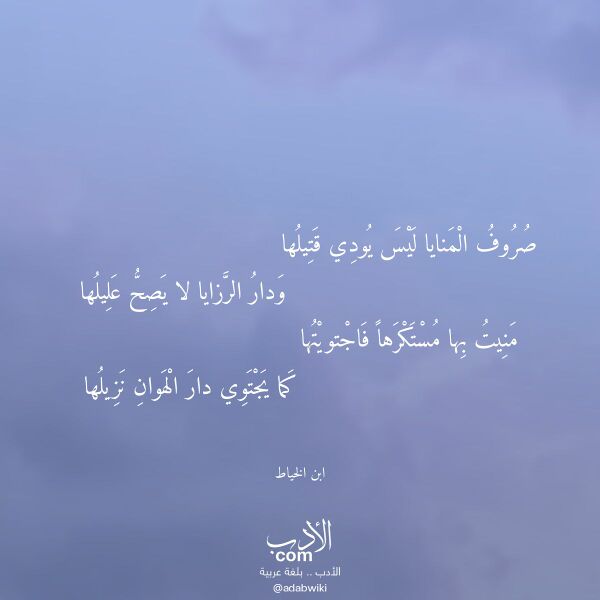 صُرُوفُ الْمَنايا لَيْسَ يُودِي قَتِيلُها
وَدارُ الرَّزايا لا يَصِحُّ عَلِيلُها
مَنِيتُ بِها مُسْتَكْرَهاً فَاجْتويْتُها
كَما يَجْتَوِي دارَ الْهَوانِ نَزِيلُها
ابن الخياط
الأدب
com
الأدب .. بلغة عربية
@adabwiki